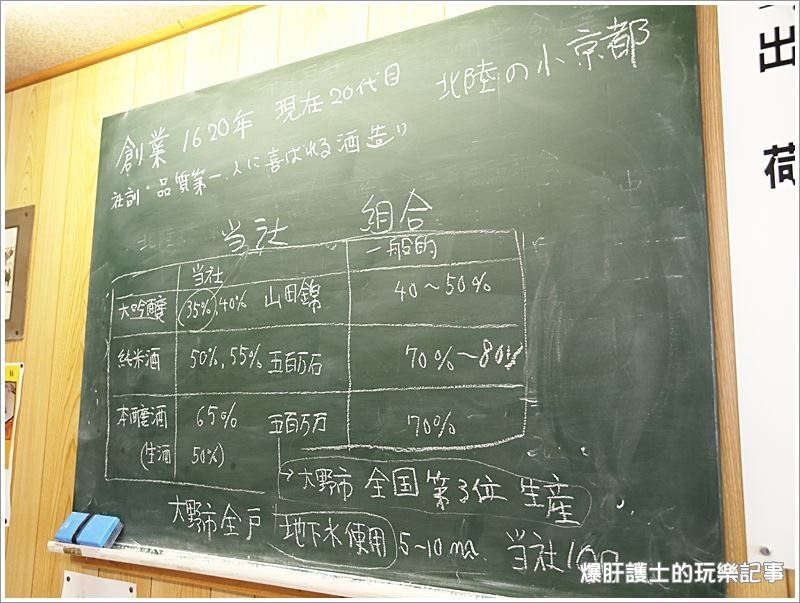 創業 1620年 現在20代目 北陸の小京都
社訓・品質第一.人に喜ばれる酒造り
北陸 当社 組合
当社 一般的
大吟醸 35% 40% 山田錦 40～50%
純米酒 50%, 55% 五百万石 70%～80%
本醸酒 65% 五百万万 70%
(生酒 50%)
→大野市 全国第3位 生産
大野市全戸 地下水使用 5～10m 当社100
出
荷
爆肝護士的玩樂記事